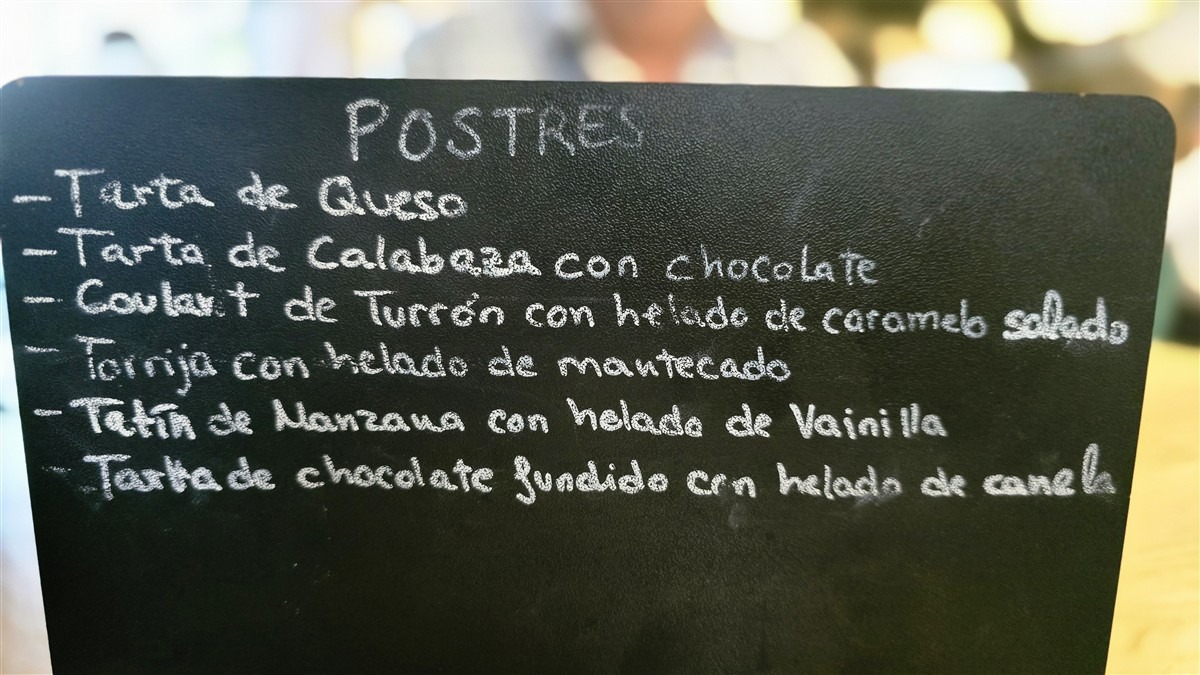 POSTRES
- Tarta de Queso
- Tarta de Calabaza con chocolate
- Coulant de Turrón con helado de caramelo salado
- Torrija con helado de mantecado
- Tatín de Manzana con helado de Vainilla
- Tarta de chocolate fundido con helado de canela